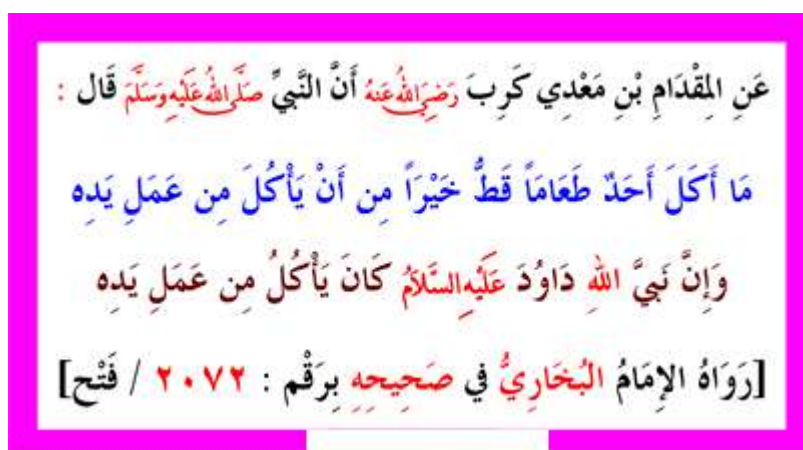 عَنِ المِقْدَامِ بْنِ مَعْدِي كَرِبَ رَضِيَ اللهُ عَنْهُ أَنَّ النَّبِيَّ صَلَّى اللهُ عَلَيْهِ وَسَلَّمَ قَال :
مَا أَكَلَ أَحَدٌ طَعَامَاً قَطُّ خَيْرَاً مِن أَنْ يَأْكُلَ مِن عَمَلِ يَدِه
وَإِنَّ نَبِيَّ اللهِ دَاوُدَ عَلَيْهِ السَّلَامُ كَانَ يَأْكُلُ مِن عَمَلِ يَدِه
[رَوَاهُ الإِمَامُ البُخَارِيُّ في صَحِيحِهِ بِرَقْم : ٢٠٧٢ / فَتْح]